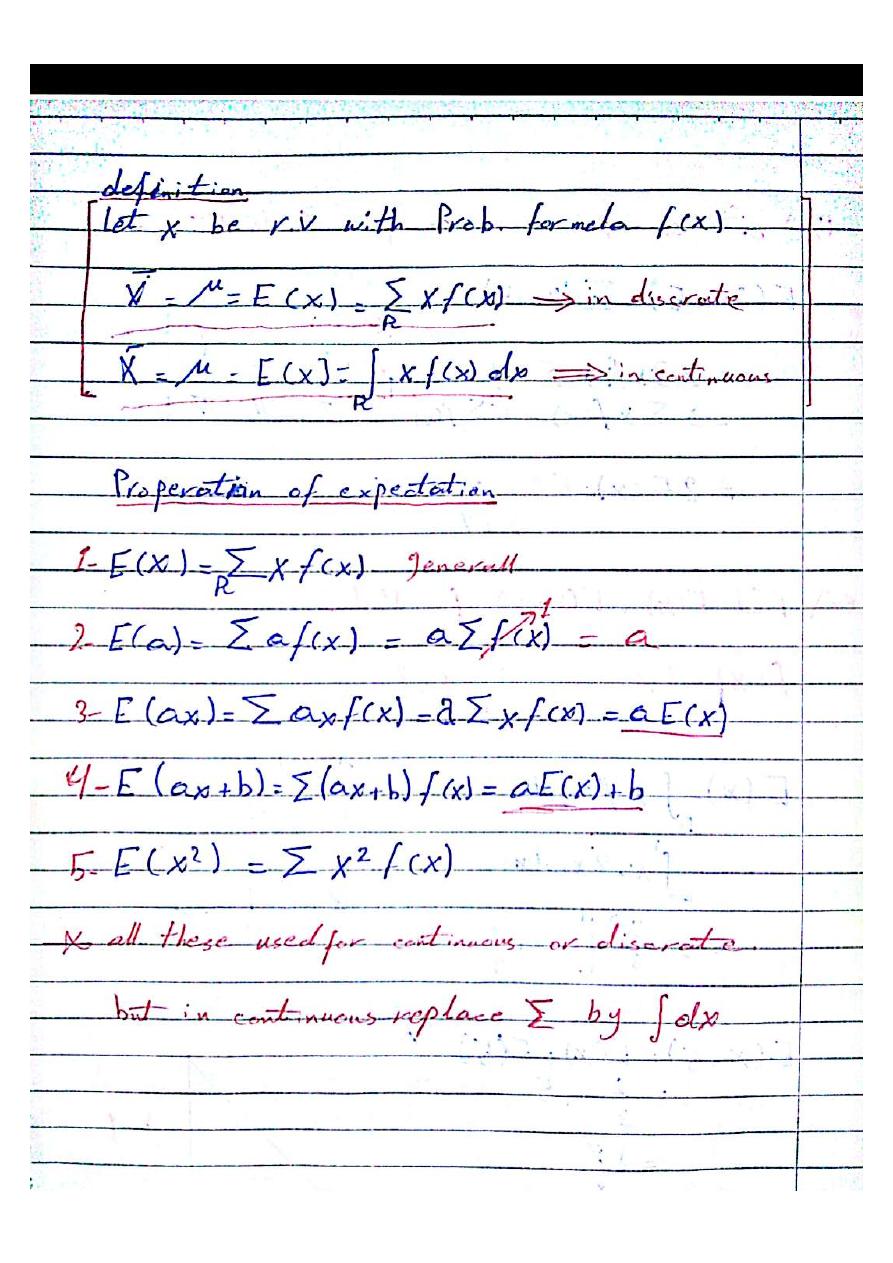 definition
Let x be r.v with Prob. formela f(x)
X̄ = μ = E(x) = Σ_R x f(x) ⟹ in discrate
X̄ = μ = E(x) = ∫_R x f(x) dx ⟹ in continuous
Properation of expectation
1- E(X) = Σ_R x f(x) generall
2- E(a) = Σ a f(x) = a Σ f(x) ↗1 = a
3- E(ax) = Σ ax f(x) = a Σ x f(x) = a E(x)
4- E(ax+b) = Σ(ax+b) f(x) = a E(x) + b
5- E(x²) = Σ x² f(x)
x all these used for continuous or discrate
but in continuous replace Σ by ∫ dx